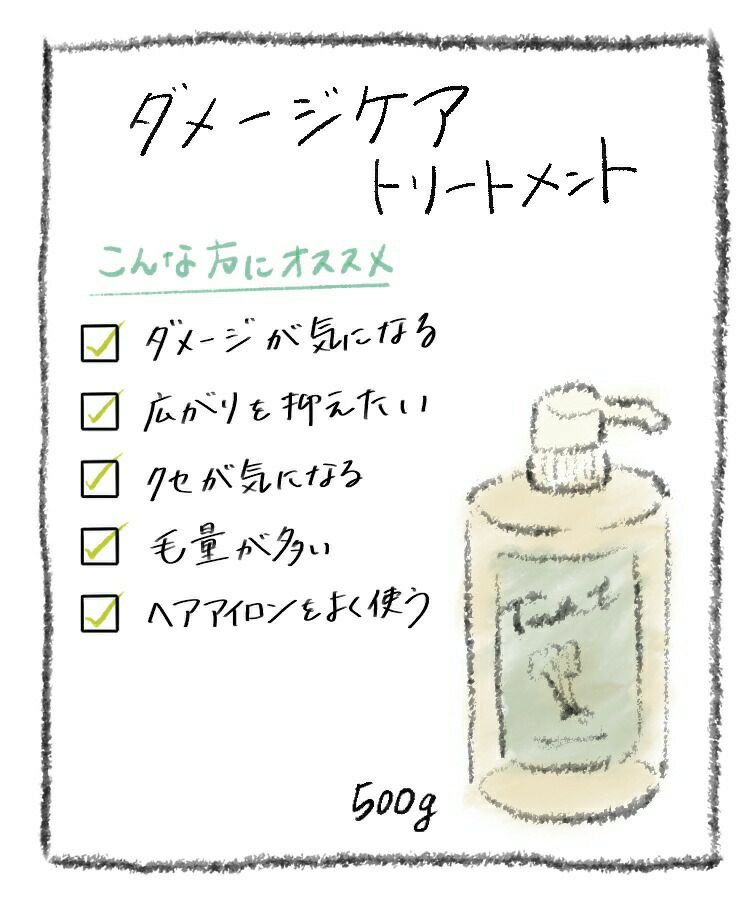 ダメージケア
トリートメント
こんな方にオススメ
ダメージが気になる
広がりを抑えたい
クセが気になる
毛量が多い
ヘアアイロンをよく使う
500g